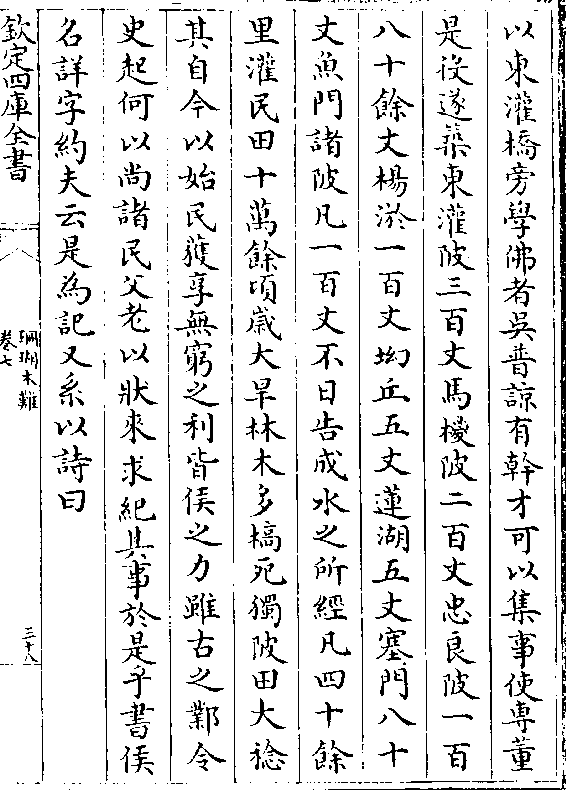 以東灌橋旁學佛者吳普諒有幹才可以集事使専董
是役遂築東灌陂三百丈馬㰇陂二百丈忠良陂一百
八十餘丈楊淤一百丈坳丘五丈蓮湖五丈塞門八十
丈魚門諸陂凡一百丈不日告成水之所經凡四十餘
里灌民田十萬餘頃歲大旱林木多槁死獨陂田大稔
其自今以始民獲享無窮之利皆侯之力雖古之鄴令
史起何以尚諸民父老以狀來求紀其事於是乎書侯
名詳字約夫云是為記又系以詩曰
欽定四庫全書
珊瑚木難
卷七
三十八